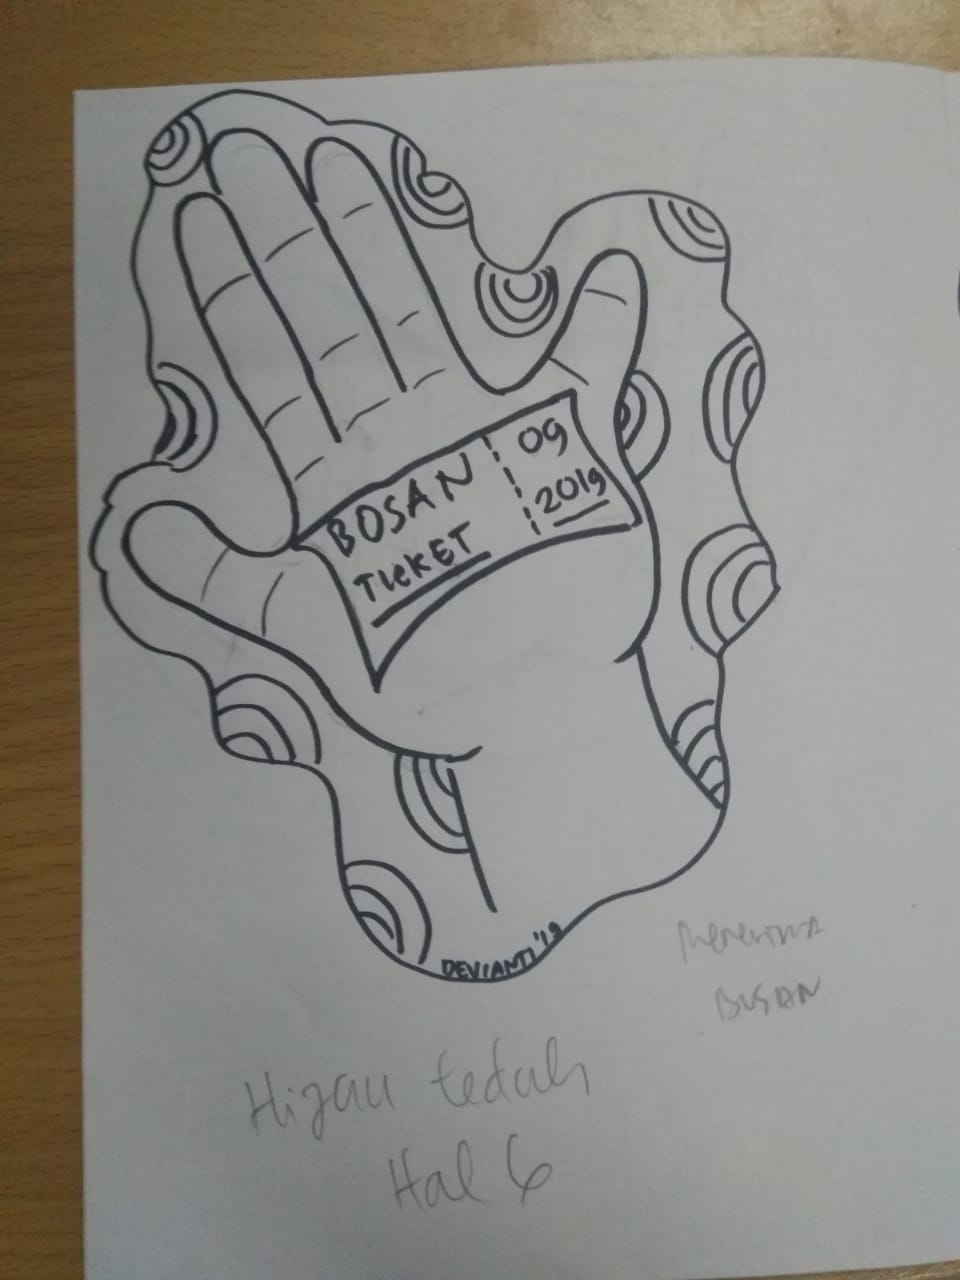 BOSAN
TICKET
09
2019
DEVIANTI '19
Menerima
BOSAN
Hijau teduh
Hal 6